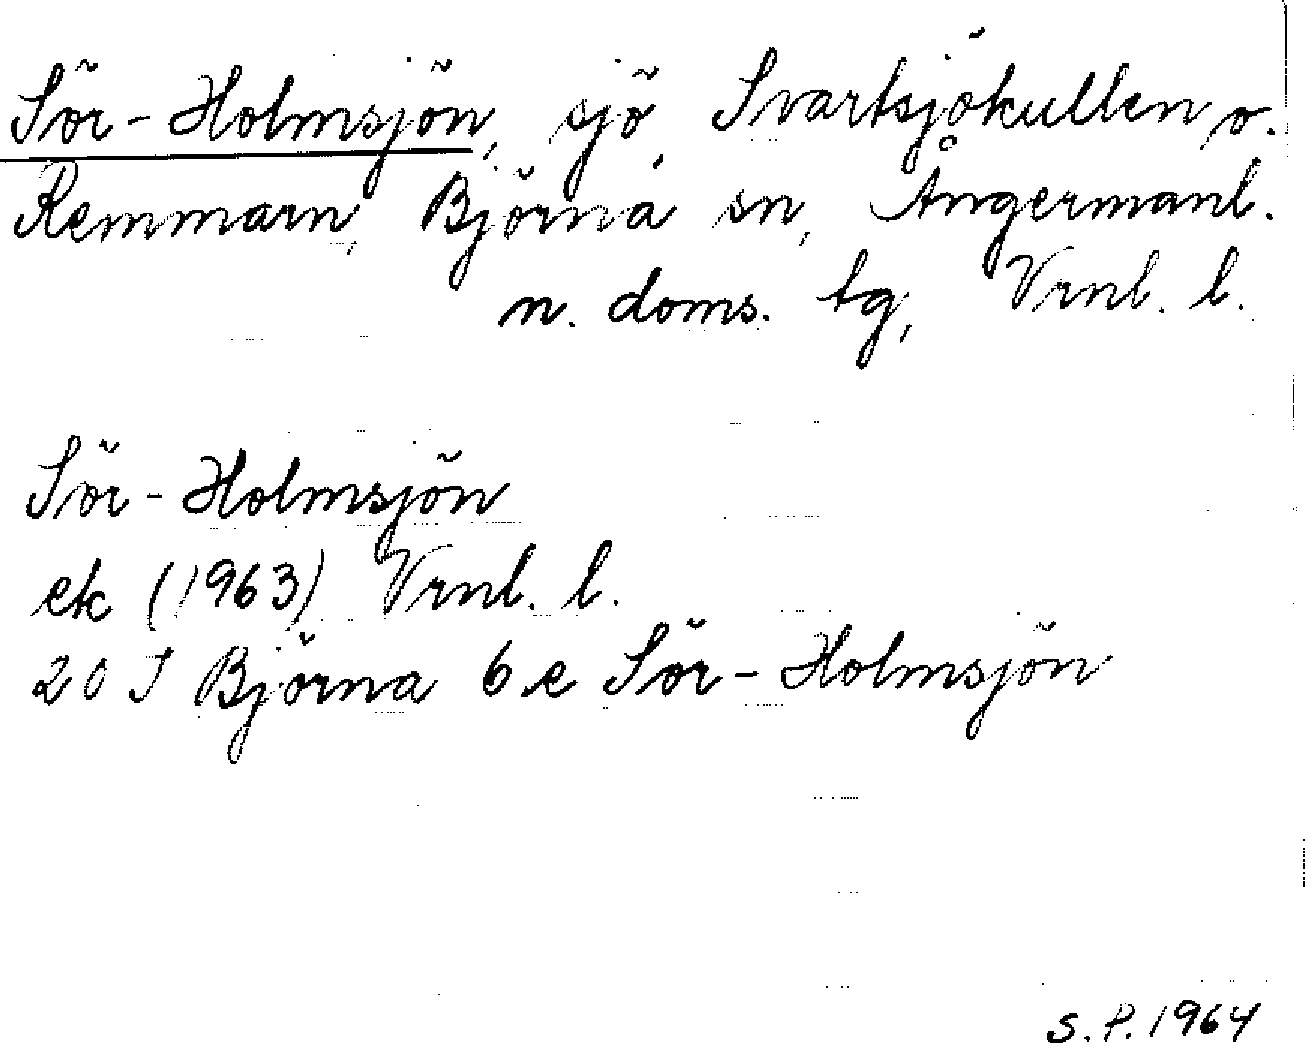 Sör-Holmsjön, sjö, Svartsjökullen o.
Remmarn, Björna sn, Ångermanl.
n. doms. tg, Vrnl. l.
Sör-Holmsjön
ek (1963) Vrnl. l.
20 J Björna 6e Sör-Holmsjön
S.P. 1964